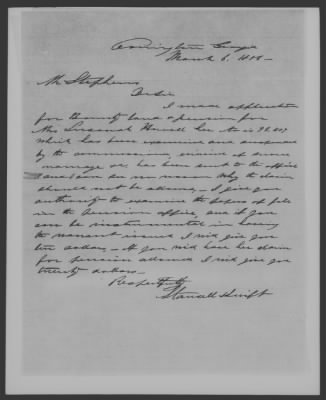 Covington Georgia
March 6. 1858 -
Mr Stephens
Dr Sir
I made application
for thounty land & pension for
Mrs Susannah Howell her No is
which has been examined and suspended
by the commissioner, evidence of
marriage &c has been sent to the office
and I can see no reason why the claim
should not be allowed, - I give you
authority to examine the papers of file
in the Pension office, and if you
can be instrumental in having
the warrant issued I will give you
ten dollars - If you will have her claim
for pension allowed I will give you
twenty dollars -
Respectfully
Swift